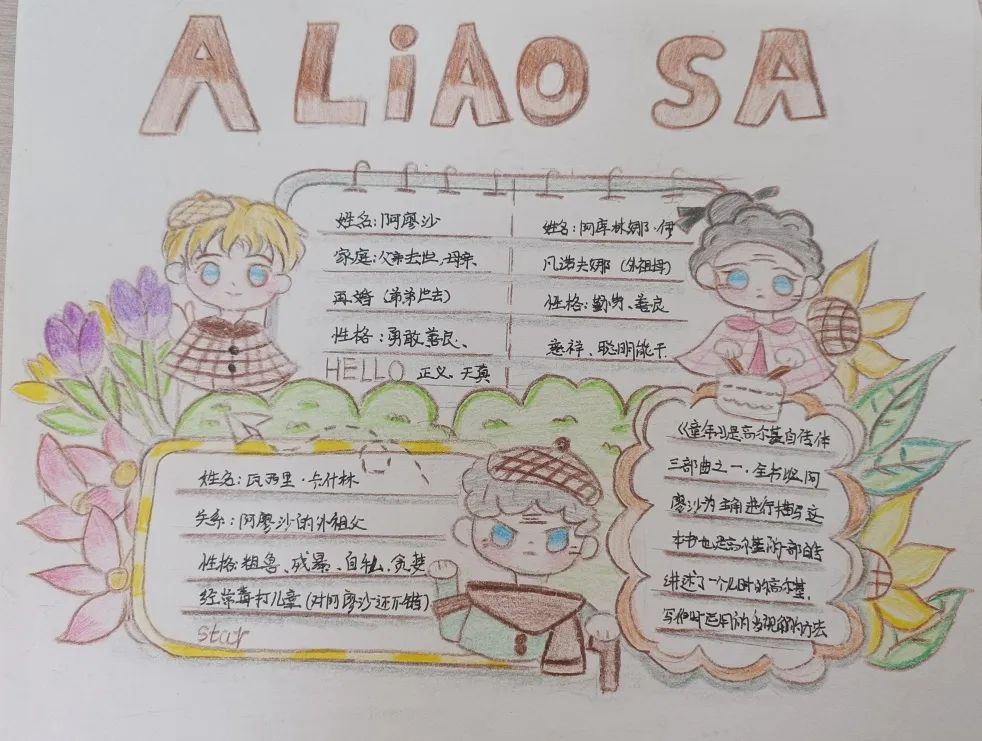 ALiAO SA
姓名:阿廖沙
家庭:父亲去世、母亲
再婚(弟弟世去)
性格:勇敢善良、
HELLO 正义、天真
姓名:阿库林娜·伊
凡诺夫娜(外祖母)
性格:勤劳、善良
慈祥、聪明能干
姓名:瓦西里·卡什林
关系:阿廖沙的外祖父
性格:粗鲁、残暴、自私、贪婪
经常毒打儿童(对阿廖沙还不错)
star
《童年》是高尔基自传体
三部曲之一,全书以阿
廖沙为主角进行描写这
本书也是高尔基的一部自传
讲述了一个儿时的高尔基,
写他时运用的方法